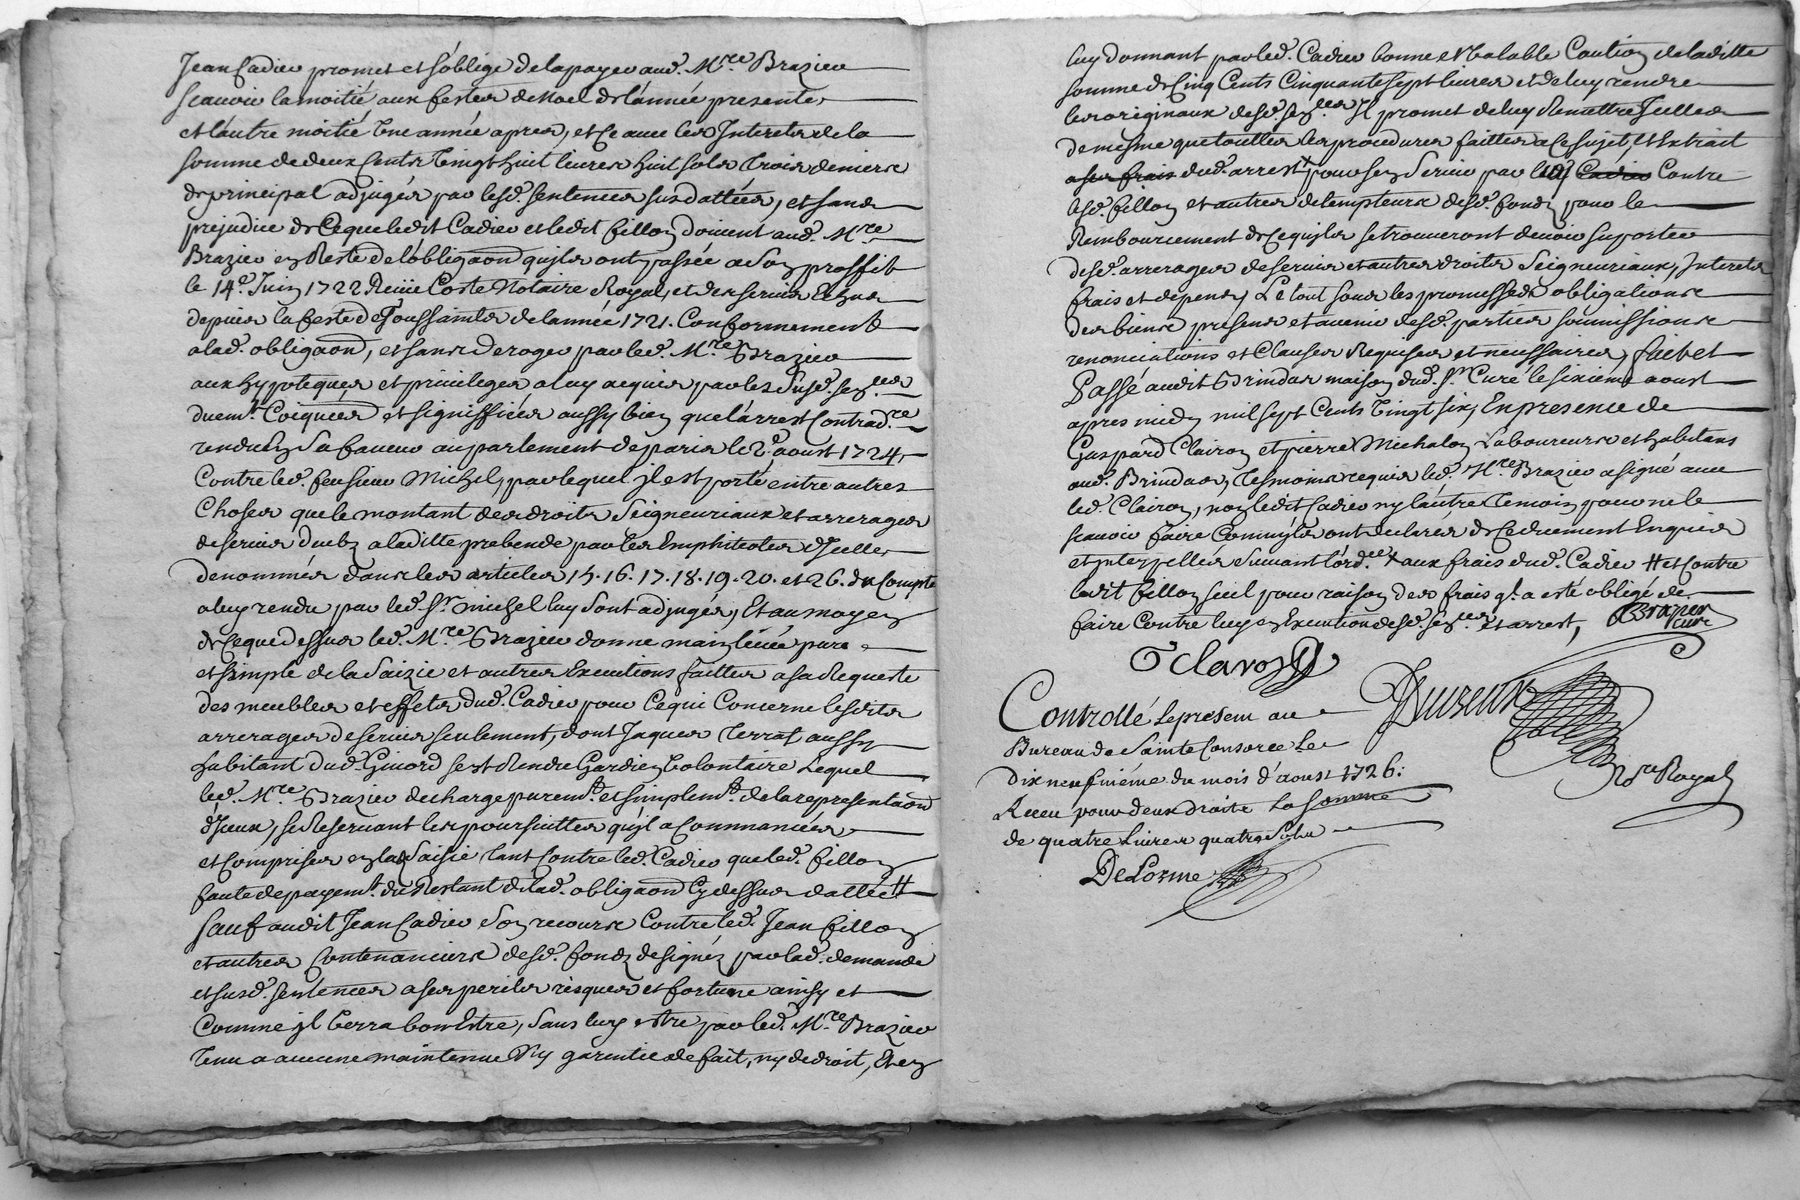 Jean Cadier promet et s'oblige de la payer aud. Mre. Brazier
scavoir la moitié aux festes de Noel de l'année presente,
et l'autre moitié une année apres, et ce avec les Interets de la
somme de deux cents vingt huit livres huit sols trois deniers
de principal adjugés par lesd. sentences susdattées, et sans
prejudice de ce que ledit Cadier et ledit fillon doivent aud. Mre.
Brazier en Reste de l'obligaon qu'ils ont passée a son proffit
le 14e. Juin 1722. Reçüe Coste Notaire Royal, et des servis Echus
depuis la feste de Toussaints de l'année 1721. Conformement
a lad. obligaon, et sans deroger par led. Mre. Brazier
aux hypoteques et privileges a luy acquis par les susd. sen.ces
duem.t et signiffiées aussy bien que l'arrest Contrad.re
rendu en sa faveur au parlement de paris le 2e. aoust 1724,
Contre led. feu sieur Michel, par lequel il est porté entre autres
Choses que le montant des droits seigneuriaux et arrerages
de servis dus a laditte prebende par les Emphiteotes d'Icelle
denommés dans les articles 15. 16. 17. 18. 19. 20. et 26. du Compte
a luy rendu par led. Sr. michel luy sont adjugés, Et au moyen
de ce que dessus led. Mre. Brazier donne main levée pure
et simple de la Saizie et autres Executions faittes a sa Requeste
des meubles et effets dud. Cadier pour ce qui Concerne lesdits
arrerages de servis seulement, dont Jaques Terrat aussy
habitant dud. Givord s'est Rendu Gardien volontaire Lequel
led. Mre. Brazier decharge purem.t et simplem.t de la representaon
d'Iceux, se Reservant les poursuittes qu'il a Commancées
et Comprises en la Saisie tant Contre led. Cadier que led. fillon
faute de payem.t du Restant de lad. obligaon cy dessus dattée #
sauf audit Jean Cadier son recours Contre led. Jean fillon
et autres Contenanciers desd. fonds designés par lad. demande
et susd. sentences a ses perils risques et fortune ainsy et
Comme il verra bon Estre, sans luy estre par led. Mre. Brazier
tenu a aucune maintenue Ny garentie de fait, ny de droit, Et en
luy donnant par led. Cadier bonne et valable Caution de laditte
somme de Cinq Cents Cinquante sept livres et de luy rendre
les originaux desd. sen.ces Il promet de luy Remettre Icelles
de mesme que touttes les procedures faittes a ce sujet et Extrait
a ses frais dud. arrest + pour s'en servir par luy Cadier Contre
lesd. fillon et autres detempteurs desd. fonds pour le
Remboursement de ce qu'ils se trouveront devoir suporter
desd. arrerages de servis et autres droits Seigneuriaux, Interets
frais et depends, Le tout sous les promesses obligations
des biens presens et avenir desd. parties soumissions
renonciations et Clauses Requises et necessaires, fait et
Passé audit Brindas maison dud. Sr. Curé le sixième aoust
apres midy mil sept Cents vingt six, En presence de
Gaspard Clairon et pierre Michalon Laboureurs et habitans
aud. Brindas, tesmoins requis led. Mre. Brazier a signé avec
led. Clairon, non ledit Cadier ny l'autre temoin pour ne le
scavoir faire Comm'ils ont declarés de ce duement Enquis
et interpellés suivant l'ord.ce + aux frais dud. Cadier # et Contre
ledit fillon seul pour raison des frais q'l. a esté obligé de
faire Contre luy en Execution desd. sen.ces et arrest,
Brazier
curé
G Clairon
Controllé le present au
Bureau de Sainte Consorce Le
Dix neufvième du mois d'aoust 1726:
Receu pour deux droits la somme
de quatre Livres quatre Sols
DeLorme
Nre. Royal